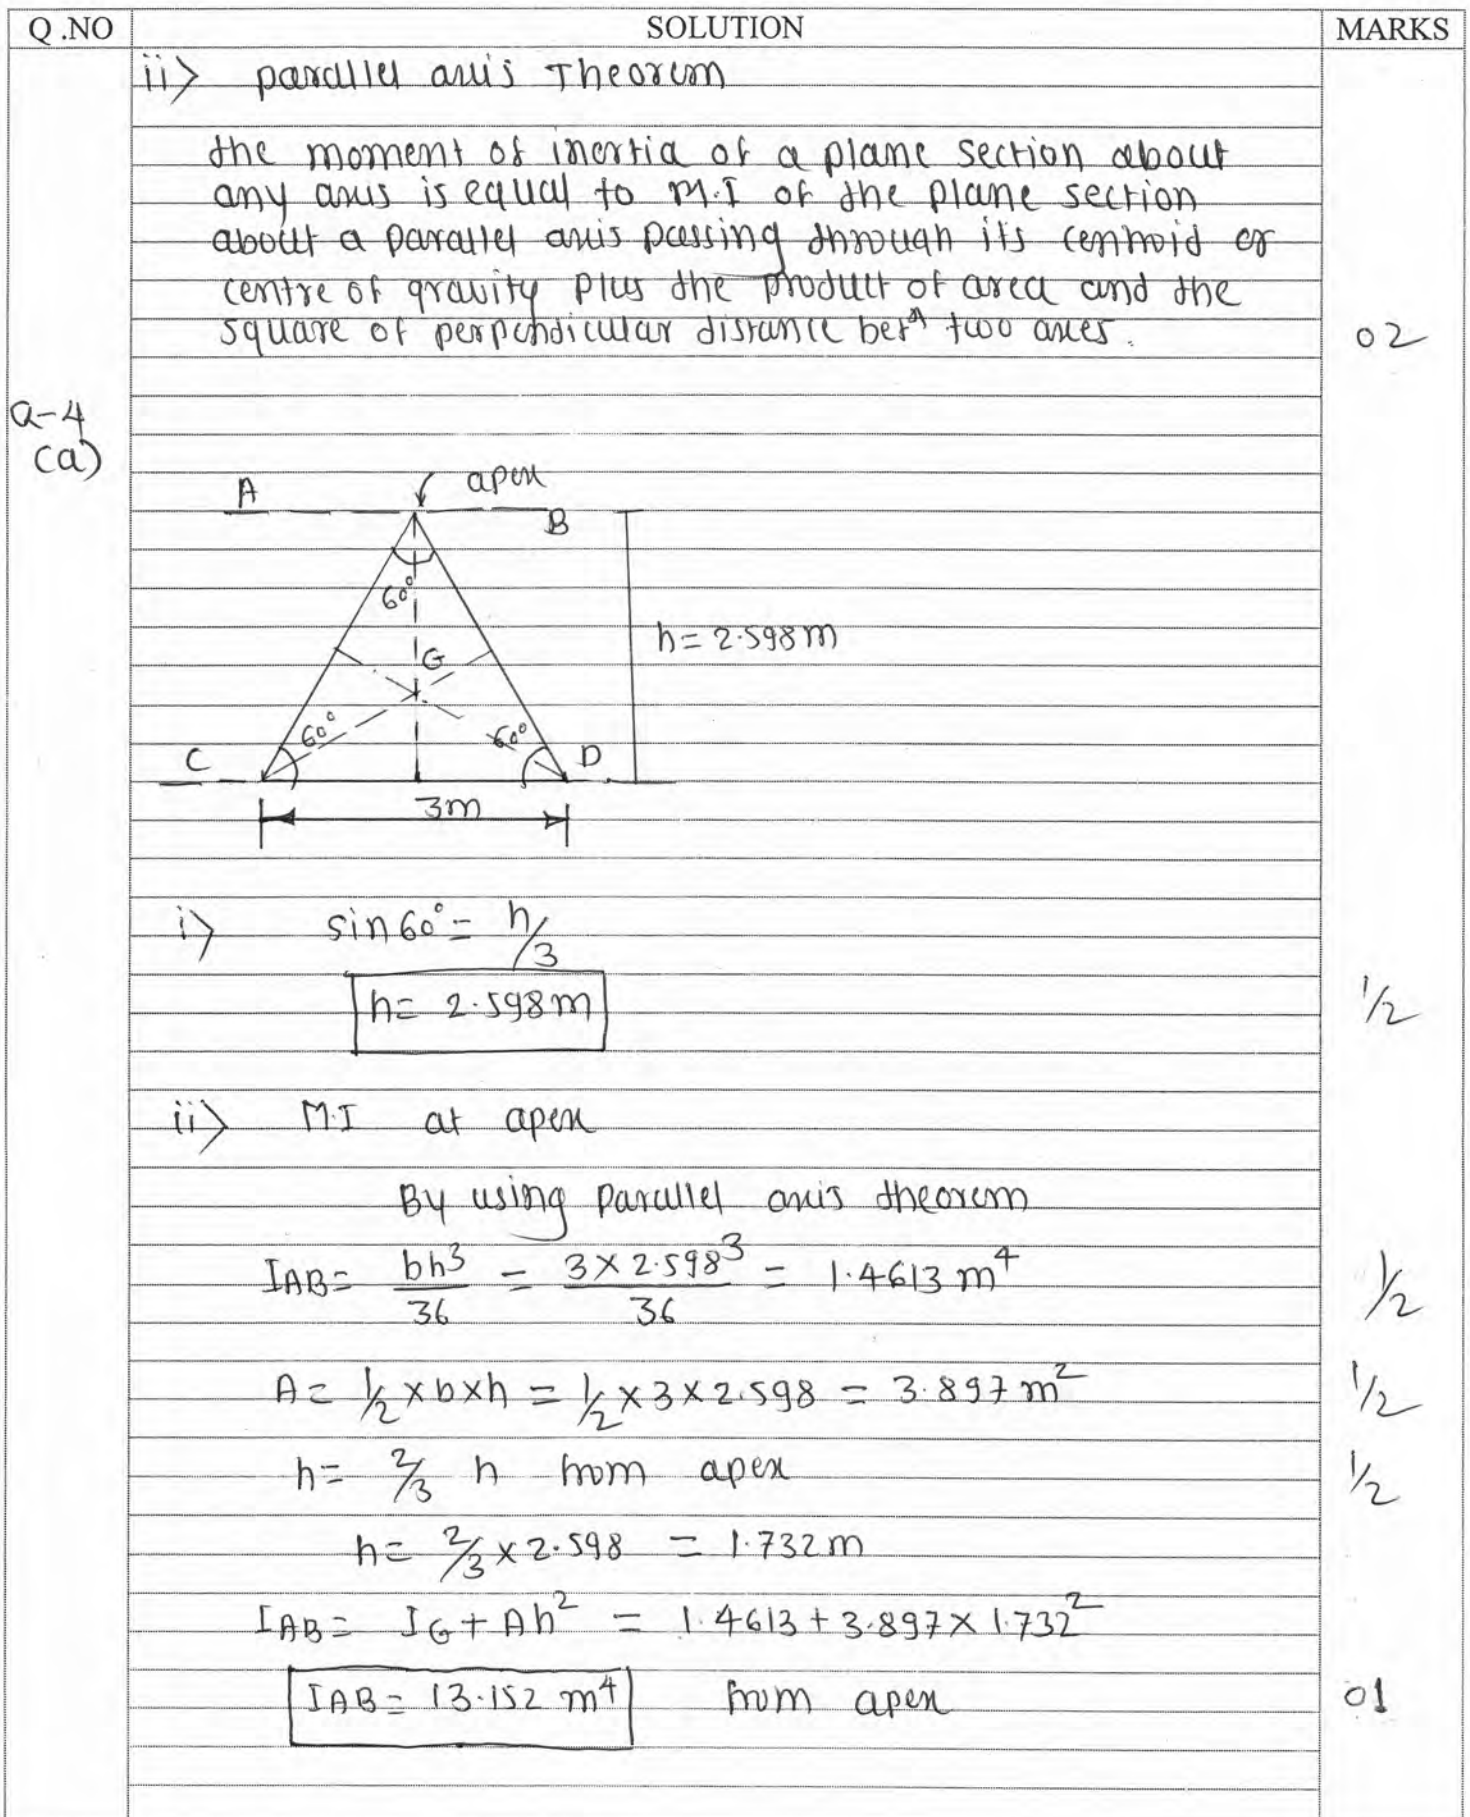 Q .NO SOLUTION MARKS
ii> parallel axis Theorem
the moment of inertia of a plane section about
any axis is equal to M.I of the plane section
about a parallel axis passing through its centroid or
centre of gravity plus the product of area and the
square of perpendicular distance betⁿ two axes. 02
Q-4
(a)
A apex
B
60°
h= 2.598m
G
60° 60°
C D
3m
i> sin60° = h/3
h= 2.598m 1/2
ii> M.I at apex
By using parallel axis theorem
IAB= bh³/36 = 3×2.598³/36 = 1.4613 m⁴ 1/2
A= 1/2 ×b×h = 1/2 ×3×2.598 = 3.897 m² 1/2
h= 2/3 h from apex 1/2
h= 2/3 ×2.598 = 1.732m
IAB= IG+Ah² = 1.4613+3.897×1.732²
IAB= 13.152 m⁴ from apex 01